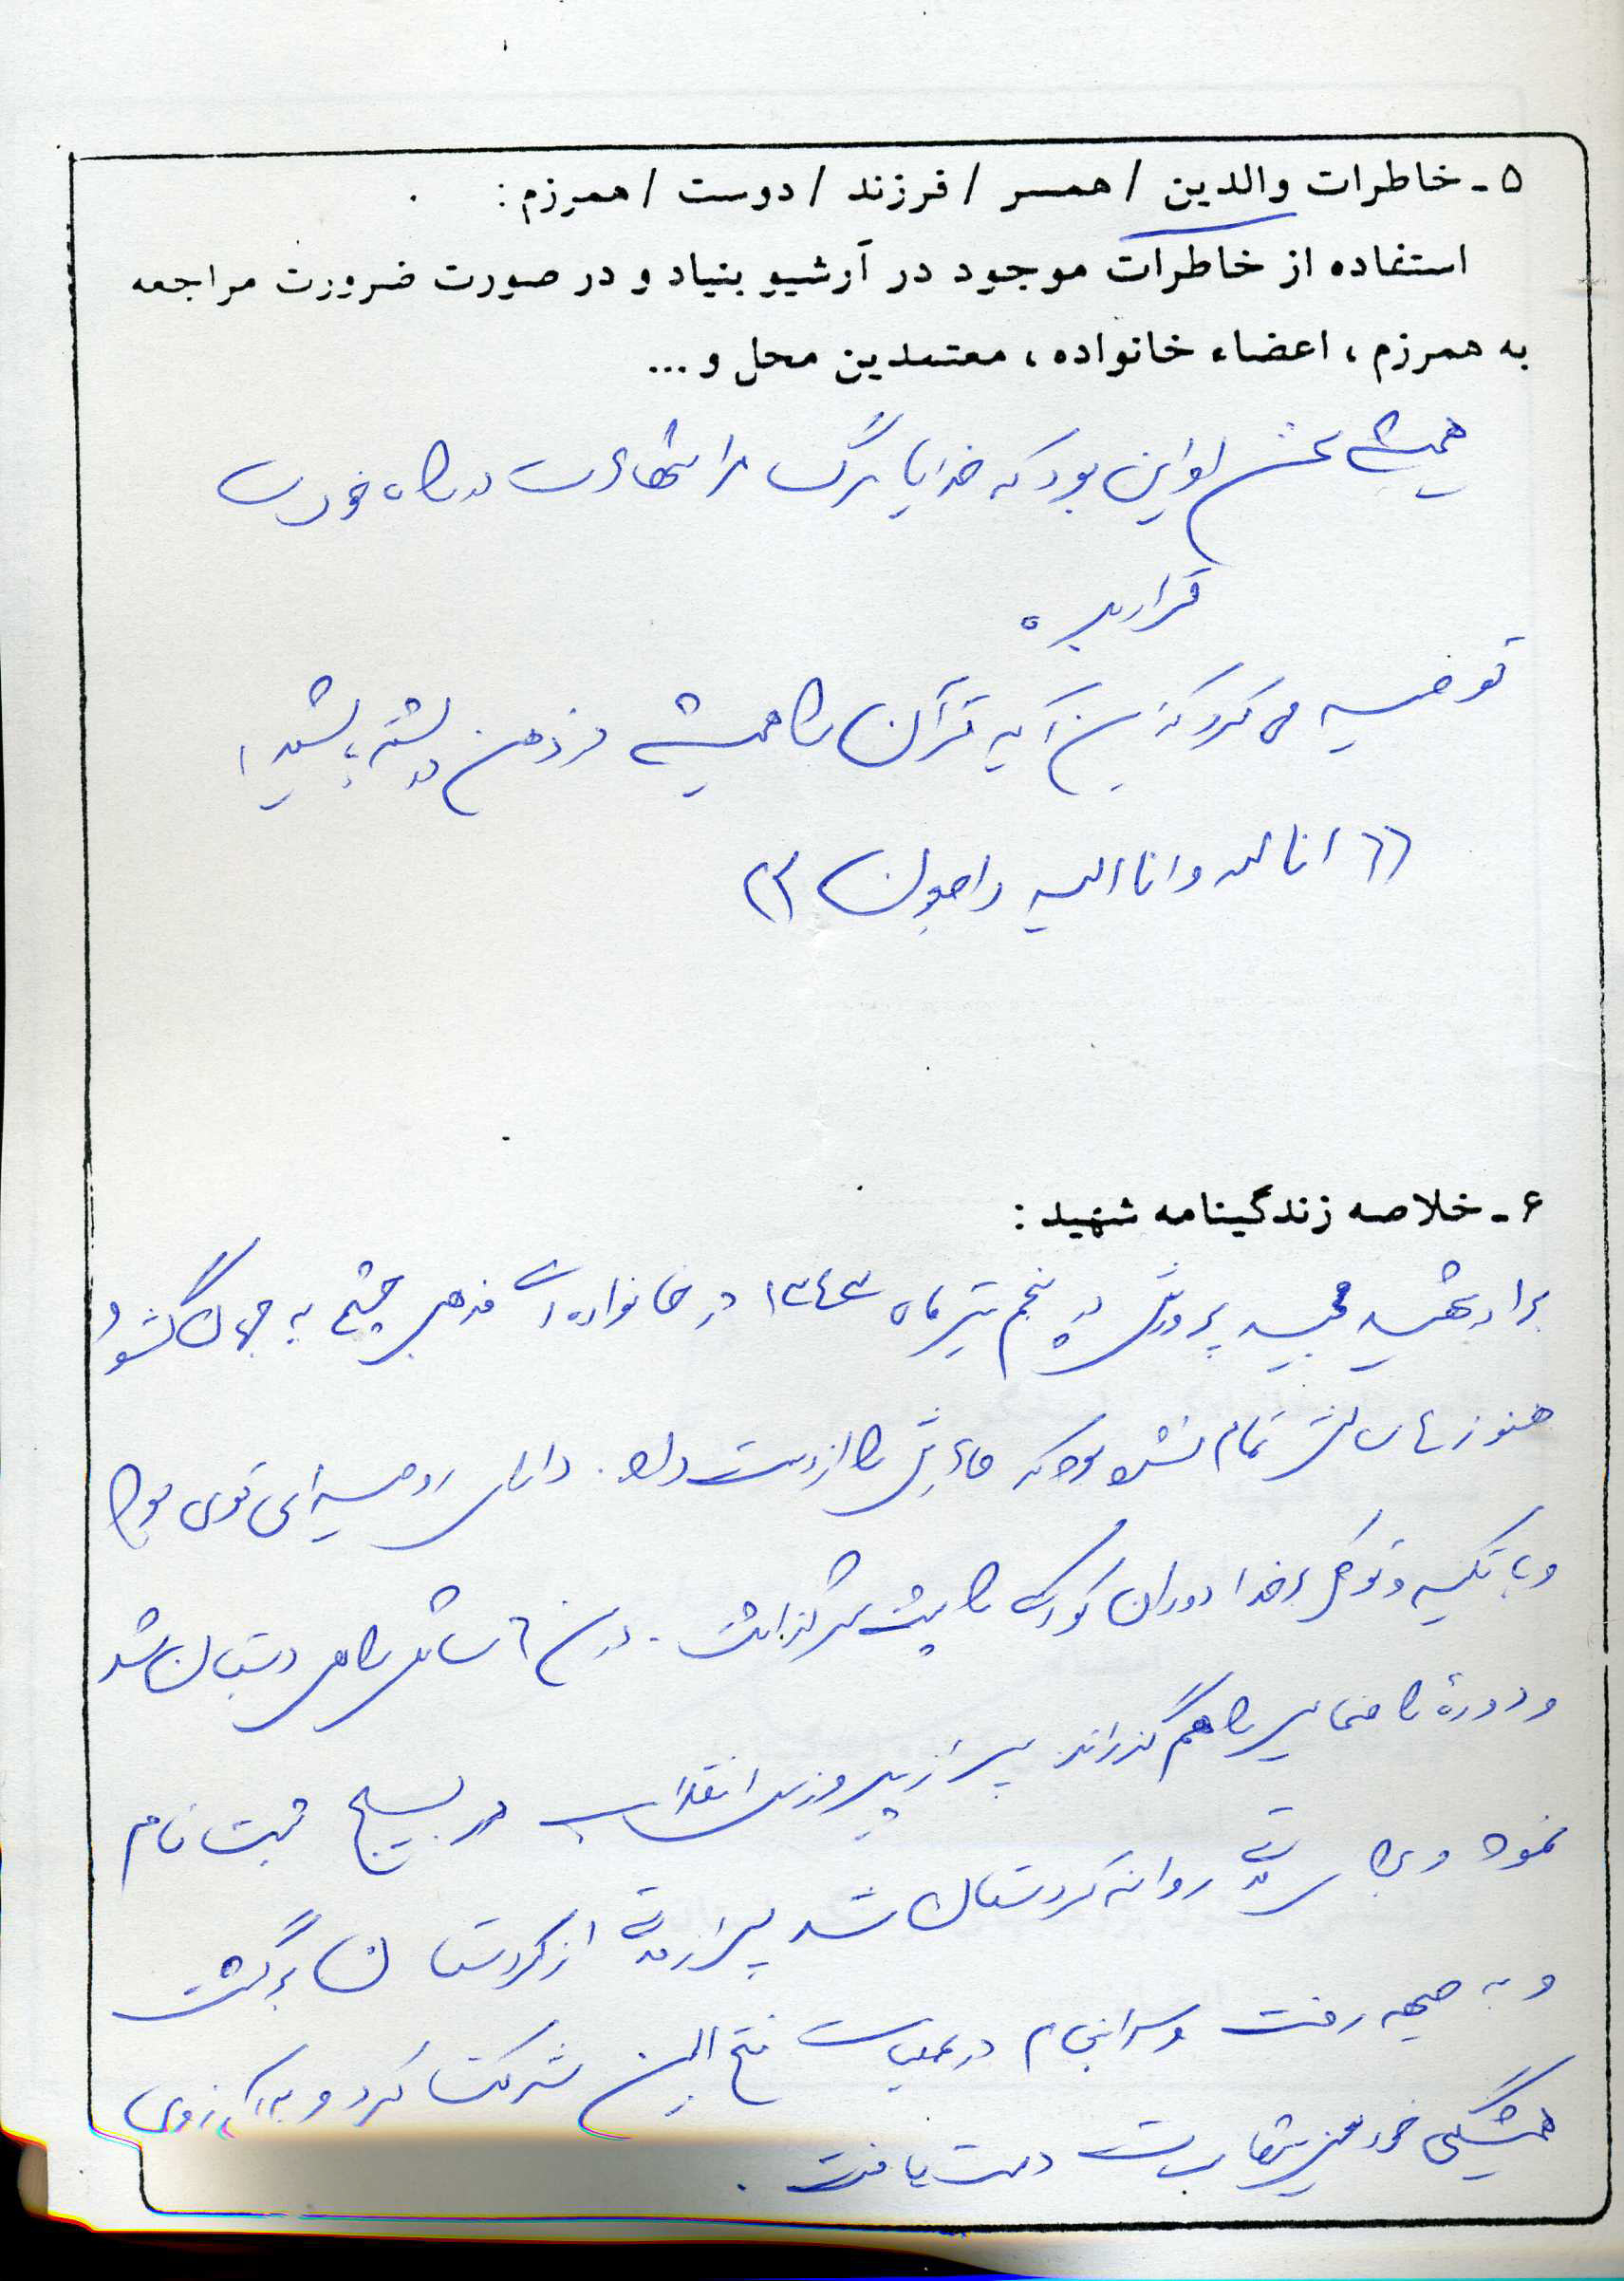 ۵ - خاطرات والدین / همسر / فرزند / دوست / همرزم :
استفاده از خاطرات موجود در آرشیو بنیاد و در صورت ضرورت مراجعه
به همرزم ، اعضاء خانواده ، معتمدین محل و ...
همیشه سخن او این بود که خدایا مرگ مرا شهادت در راه خودت
قرار بده
توصیه می کرد که این آیه قرآن را همیشه در ذهن داشته باشید
(( انا لله و انا الیه راجعون ))
۶ - خلاصه زندگینامه شهید :
برادر شهید مجید پرورش در پنجم تیر ماه ۱۳۴۳ در خانواده ای مذهبی چشم به جهان گشود
هنوز تمام نشده بود که مادرش را از دست داد . دارای روحیه ای قوی بود
و با تکیه و توکل بخدا دوران کودکی را پشت سر گذاشت . در سن ۶ سالگی راهی دبستان شد
و دوره راهنمایی را هم گذراند پس از پیروزی انقلاب در بسیج ثبت نام
نمود و برای مدتی روانه کردستان شد پس از مدتی از کردستان برگشت
و به جبهه رفت و سرانجام در عملیات فتح المبین شرکت کرد و به آرزوی
همیشگی خود یعنی شهادت دست یافت .